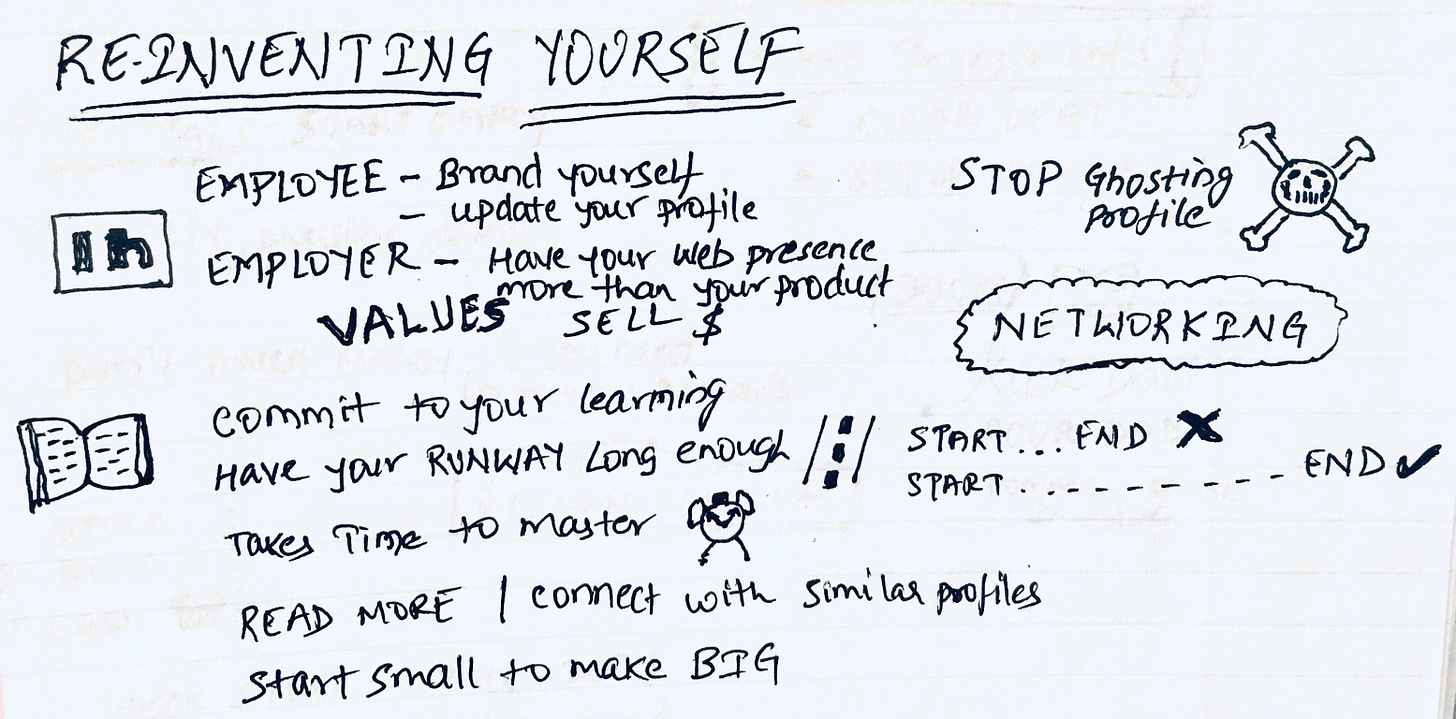 RE-INVENTING YOURSELF
EMPLOYEE - Brand yourself
- update your profile
In
EMPLOYER - Have your web presence
more than your product
VALUES SELL $
STOP Ghosting
profile
NETWORKING
commit to your learning
Have your RUNWAY Long enough
START... END X
START. . - - - - - - - - END ✓
Takes Time to master
READ MORE | connect with similar profiles
Start small to make BIG